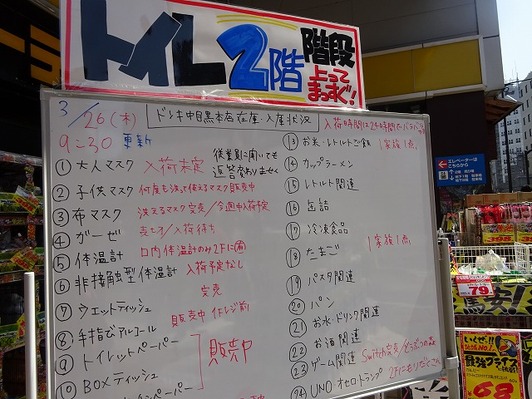 トイレ2階
階段
上って
まっすぐ!
3/26(木)
9:30 更新
ドンキ中目黒本店在庫入庫状況
入荷時間は24時間でバラバラ
従業員に聞いても
返答変わりません
① 大人マスク 入荷未定
② 子供マスク 何度も洗って使えるマスク販売中
③ 布マスク 洗えるマスク完売/今週中入荷予定
④ ガーゼ 売こう/入荷待ち
⑤ 体温計 口内体温計のみ2Fに有
⑥ 非接触型体温計 入荷予定なし
⑦ ウエットティッシュ 完売
⑧ 手指ピアルコール 販売中 1Fレジ前
⑨ トイレットペーパー
⑩ BOXティッシュ
販売中
⑬ お米・レトルトご飯 1家族1点
⑭ カップラーメン
⑮ レトルト関連
⑯ 缶詰
⑰ 冷凍食品
⑱ たまご
1家族1点
⑲ パスタ関連
⑳ パン
㉑ お水・ドリンク関連
㉒ お酒関連
㉓ ゲーム関連 Switch完売/どうぶつの森
㉔ UNO オセロ・トランプ 2Fにもりだくさん
エレベーターは
こちらから
79
68